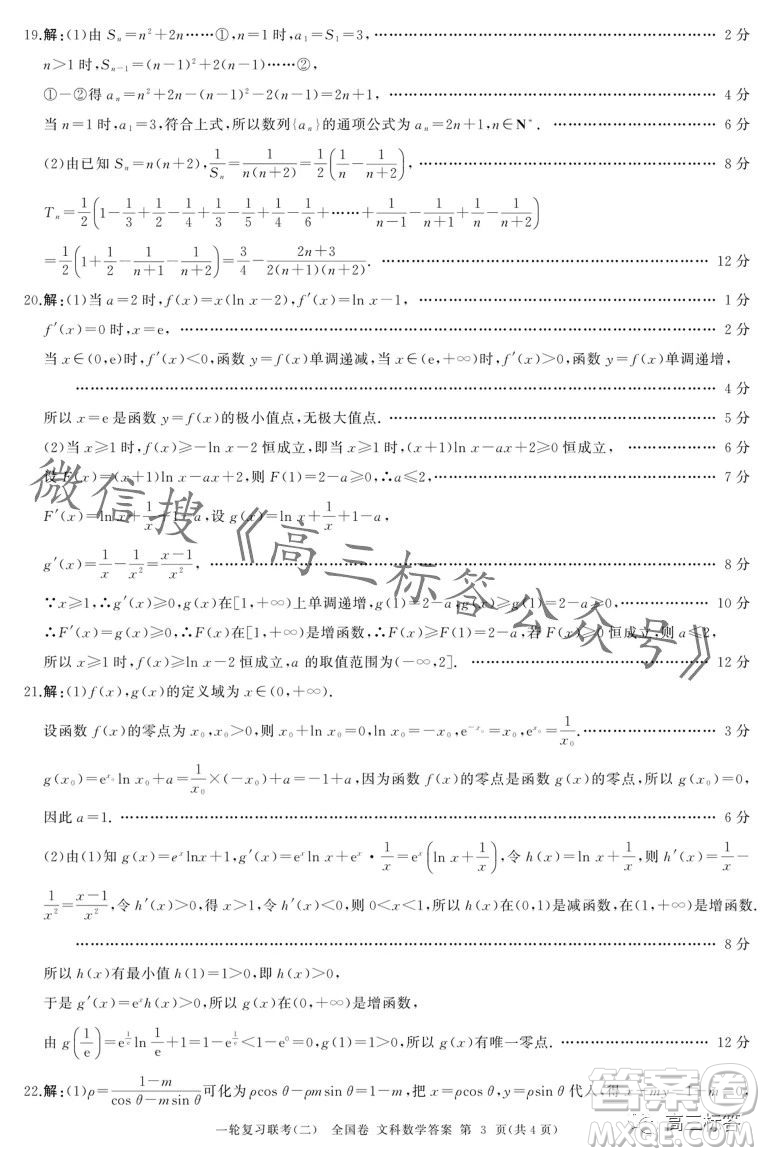 19.解:(1)由 Sₙ=n²+2n……①,n=1时,a₁=S₁=3,………… 2分
n>1时,Sₙ₋₁=(n-1)²+2(n-1)……②,
①-②得 aₙ=n²+2n-(n-1)²-2(n-1)=2n+1,………… 4分
当 n=1时,a₁=3,符合上式,所以数列{aₙ}的通项公式为 aₙ=2n+1,n∈N*. ………… 6分
(2)由已知 Sₙ=n(n+2),1/Sₙ=1/(n(n+2))=1/2(1/n-1/(n+2)),………… 8分
Tₙ=1/2(1-1/3+1/2-1/4+1/3-1/5+1/4-1/6+……+1/(n-1)-1/(n+1)+1/n-1/(n+2))
=1/2(1+1/2-1/(n+1)-1/(n+2))=3/4-(2n+3)/(2(n+1)(n+2)). ………… 12分
20.解:(1)当 a=2时,f(x)=x(ln x-2),f′(x)=ln x-1,………… 1分
f′(x)=0时,x=e,………… 2分
当 x∈(0,e)时,f′(x)<0,函数 y=f(x)单调递减,当 x∈(e,+∞)时,f′(x)>0,函数 y=f(x)单调递增,
………… 4分
所以 x=e是函数 y=f(x)的极小值点,无极大值点.………… 5分
(2)当 x≥1时,f(x)≥-ln x-2恒成立,即当 x≥1时,(x+1)ln x-ax+2≥0恒成立,………… 6分
设 F(x)=(x+1)ln x-ax+2,则 F(1)=2-a≥0,∴a≤2,………… 7分
F′(x)=ln x+1/x+1-a,设 g(x)=ln x+1/x+1-a,
g′(x)=1/x-1/x²=(x-1)/x²,………… 8分
∵x≥1,∴g′(x)≥0,g(x)在[1,+∞)上单调递增,g(1)=2-a,g(x)≥g(1)=2-a≥0,………… 10分
∴F′(x)=g(x)≥0,∴F(x)在[1,+∞)是增函数,F(x)≥F(1)=2-a,若 F(x)≥0恒成立,则 a≤2,
所以 x≥1时,f(x)≥-ln x-2恒成立,a的取值范围为(-∞,2]. ………… 12分
21.解:(1)f(x),g(x)的定义域为 x∈(0,+∞).
设函数 f(x)的零点为 x₀,x₀>0,则 x₀+ln x₀=0,ln x₀=-x₀,e^(-x₀)=x₀,e^(x₀)=1/x₀.………… 3分
g(x₀)=e^(x₀)ln x₀+a=1/x₀×(-x₀)+a=-1+a,因为函数 f(x)的零点是函数 g(x)的零点,所以 g(x₀)=0,
因此 a=1. ………… 6分
(2)由(1)知 g(x)=eˣlnx+1,g′(x)=eˣln x+eˣ·1/x=eˣ(ln x+1/x),令 h(x)=ln x+1/x,则 h′(x)=1/x-
1/x²=(x-1)/x²,令 h′(x)>0,得 x>1,令 h′(x)<0,则 0<x<1,所以 h(x)在(0,1)是减函数,在(1,+∞)是增函数.
………… 8分
所以 h(x)有最小值 h(1)=1>0,即 h(x)>0,
于是 g′(x)=eˣh(x)>0,所以 g(x)在(0,+∞)是增函数,
由 g(1/e)=e^(1/e)ln 1/e+1=1-e^(1/e)<1-e⁰=0,g(1)>0,所以 g(x)有唯一零点.………… 12分
22.解:(1)ρ=(1-m)/(cos θ-m sin θ)可化为 ρcos θ-ρm sin θ=1-m,把 x=ρcos θ,y=ρsin θ代入,得 x=my+1-m,
一轮复习联考(二) 全国卷 文科数学答案 第 3 页(共 4 页)
微信搜《高三标答公众号》
答案圈
MXQE.COM
高三标答